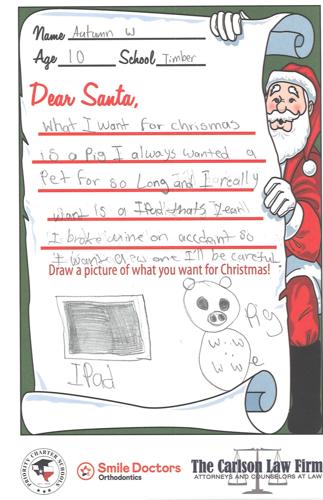 Name Autumn W
Age 10 School Timber
Dear Santa,
What I want for chrismas
is a Pig I always wanted a
Pet for so long and I really
want is a IPad thats year
I broke mine on accdent so
I want a new one I'll be careful
Draw a picture of what you want for Christmas!
IPad
Pig
PRIORITY CHARTER SCHOOLS
Smile Doctors
Orthodontics
The Carlson Law Firm
ATTORNEYS AND COUNSELORS AT LAW